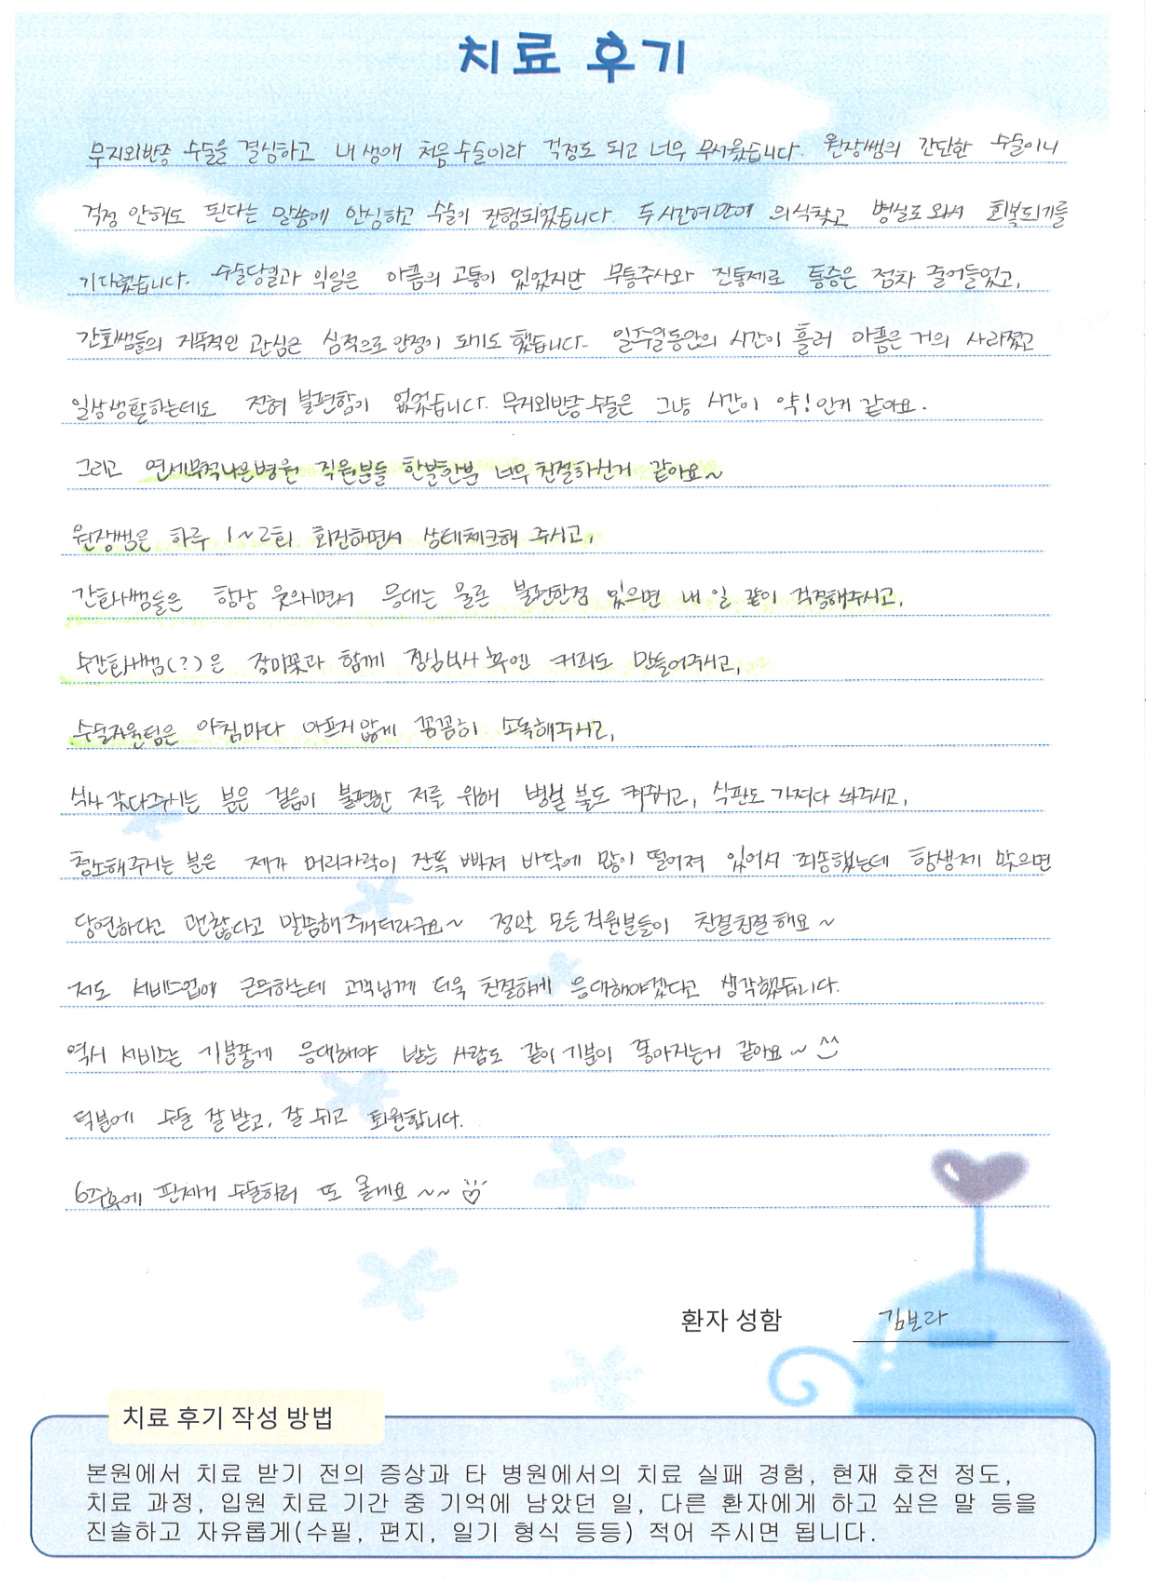 치료 후기
무지외반증 수술을 결심하고 내 생애 처음 수술이라 걱정도 되고 너무 무서웠습니다. 원장쌤의 간단한 수술이니
걱정 안해도 된다는 말씀에 안심하고 수술이 진행되었습니다. 두시간여만에 의식찾고 병실로 와서 회복되기를
기다렸습니다. 수술당일과 익일은 아픔의 고통이 있었지만 무통주사와 진통제로 통증은 점차 줄어들었고,
간호쌤들의 지극적인 관심은 심적으로 안정이 되기도 했습니다. 일주일동안의 시간이 흘러 아픔은 거의 사라졌고
일상생활하는데도 전혀 불편함이 없었습니다. 무지외반증 수술은 그냥 시간이 약! 인거 같아요.
그리고 연세무척나은병원 직원분들 한분한분 너무 친절하신거 같아요~
원장쌤은 하루 1~2회 회진하면서 상태체크해 주시고,
간호사쌤들은 항상 웃으시면서 응대는 물론 불편한점 있으면 내 일 같이 걱정해주시고,
수간호사쌤(?)은 장미꽃과 함께 점심식사 후엔 커피도 만들어주시고,
수술지원팀은 아침마다 아프지않게 꼼꼼히 소독해주시고,
식사 갖다주시는 분은 걸음이 불편한 저를 위해 병실 불도 켜주시고, 식판도 가져다 놔주시고,
청소해주시는 분은 제가 머리카락이 잔뜩 빠져 바닥에 많이 떨어져 있어서 죄송했는데 항생제 맞으면
당연하다고 괜찮다고 말씀해주시더라구요~ 정말 모든직원분들이 친절친절해요~
저도 서비스업에 근무하는데 고객님께 더욱 친절하게 응대해야겠다고 생각했습니다.
역시 서비스는 기분좋게 응대해야 받는 사람도 같이 기분이 좋아지는거 같아요~ ^^
덕분에 수술 잘 받고, 잘 쉬고 퇴원합니다.
6주후에 핀제거 수술하러 또 올게요~~
환자 성함 김보라
치료 후기 작성 방법
본원에서 치료 받기 전의 증상과 타 병원에서의 치료 실패 경험, 현재 호전 정도,
치료 과정, 입원 치료 기간 중 기억에 남았던 일, 다른 환자에게 하고 싶은 말 등을
진솔하고 자유롭게(수필, 편지, 일기 형식 등등) 적어 주시면 됩니다.